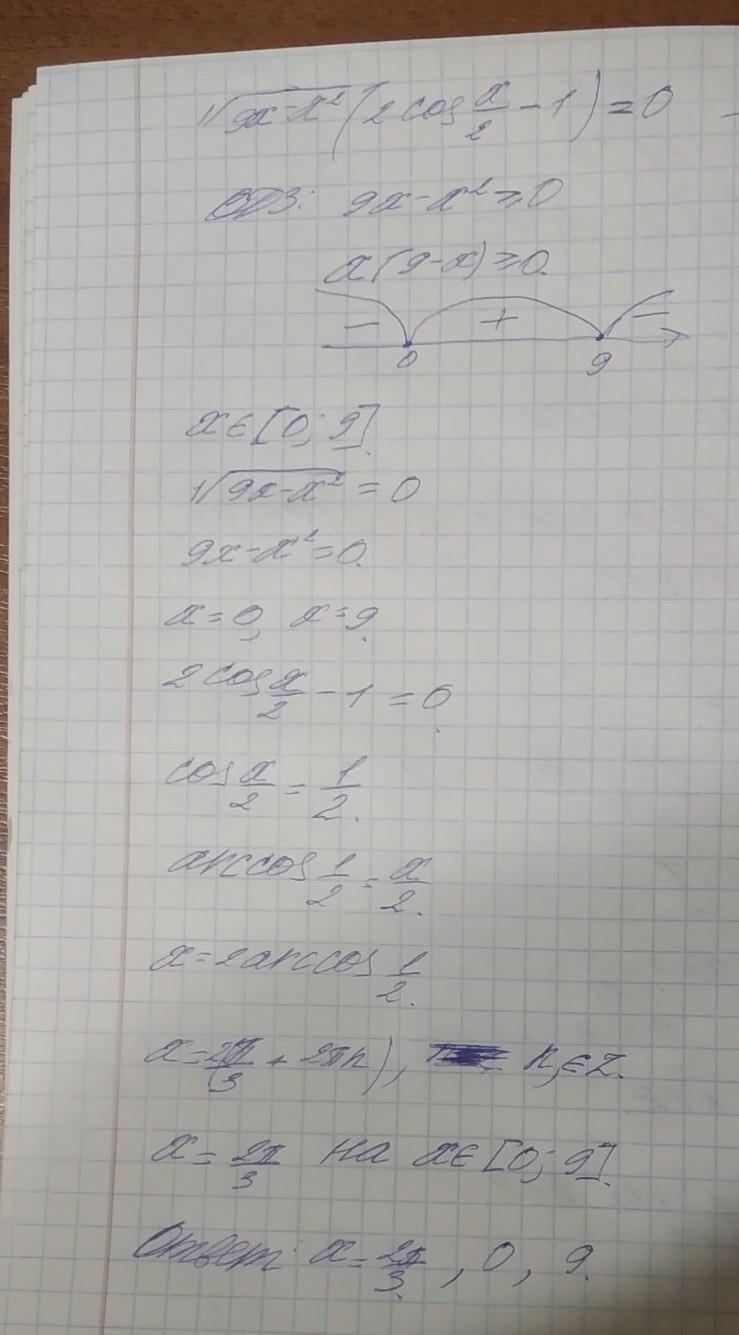 √(9x-x²) (2cos x/2 - 1) = 0
ОДЗ: 9x-x² ≥ 0
x(9-x) ≥ 0.
- + -
0 9
x∈[0; 9]
√(9x-x²) = 0
9x-x²=0.
x=0, x=9.
2cos x/2 - 1 = 0.
cos x/2 = 1/2.
arccos 1/2 = x/2.
x=2arccos 1/2.
x=2(π/3 + 2πn), n∈Z.
x= 2π/3 на x∈[0; 9].
Ответ: x= 2π/3, 0, 9.